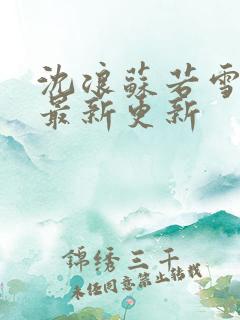 沈浪蘇若雪
最新更新
錦绣三千
未经同意禁止转载